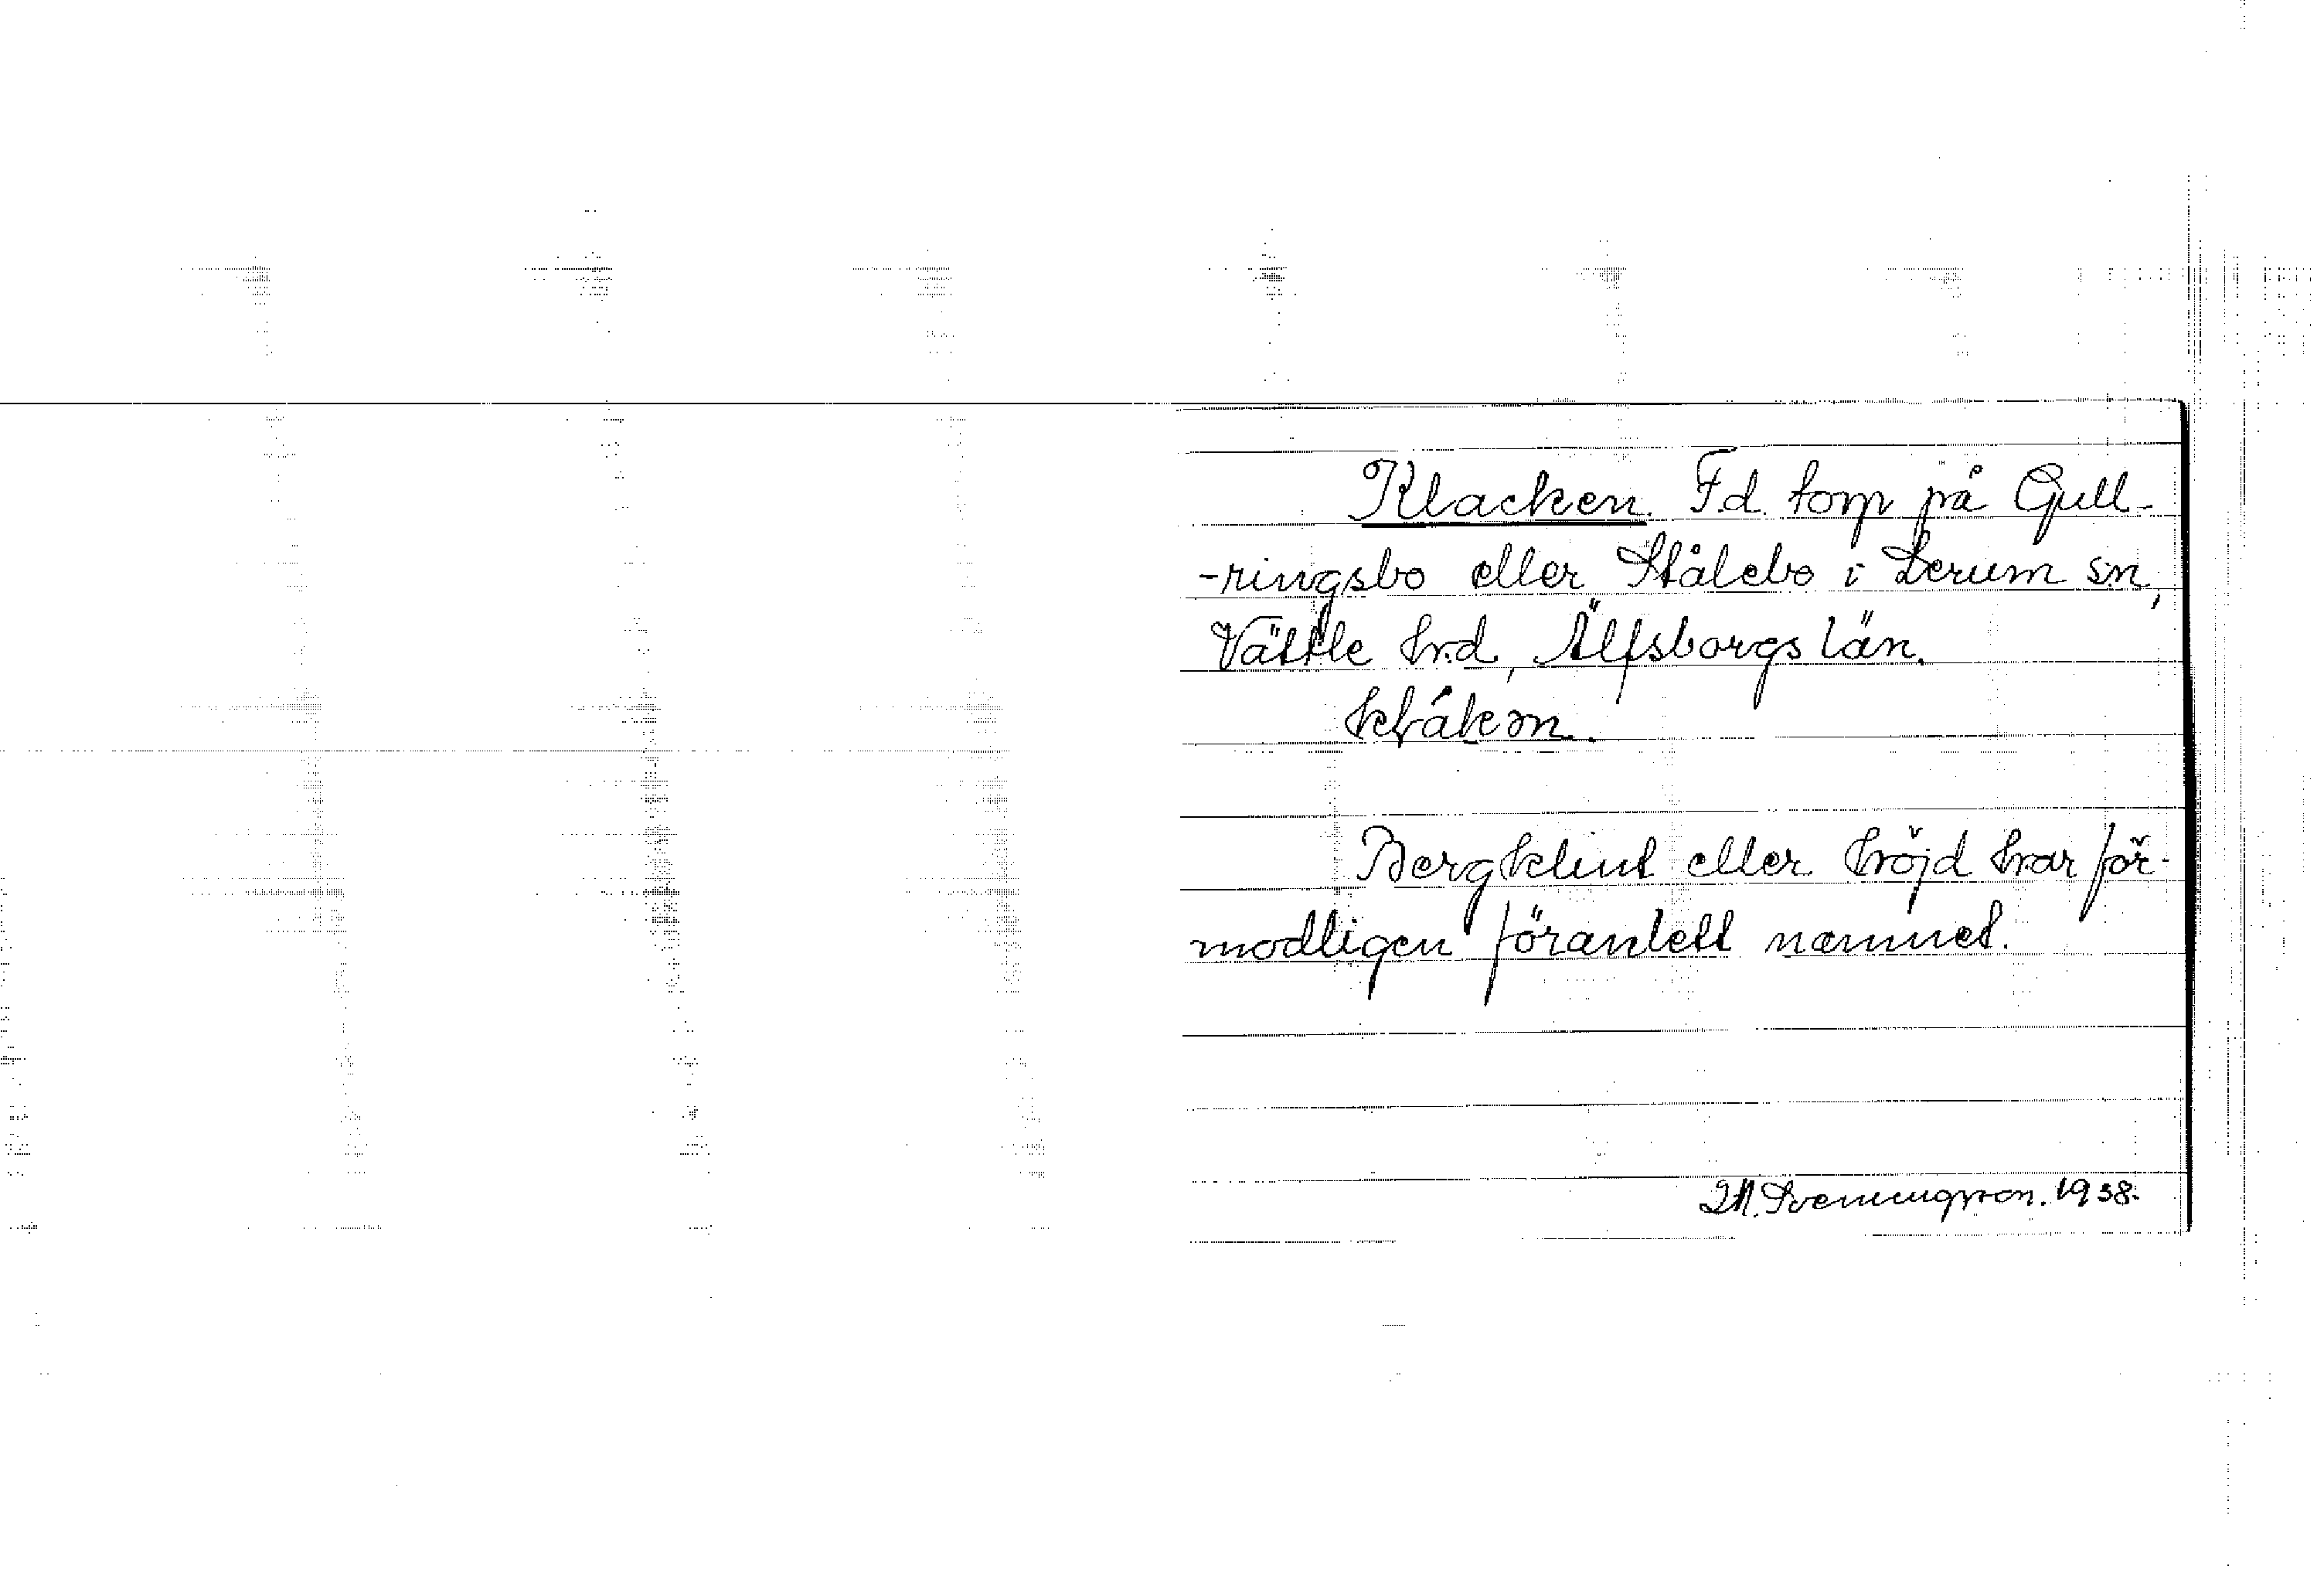 Klacken. F.d. torp på Gull-
-ringsbo eller Stålebo i Lerum sn,
Vättle hrd, Älfsborgs län.
Bergklint eller höjd har för-
modligen förantett namnet.
Svenningsson. 1938.